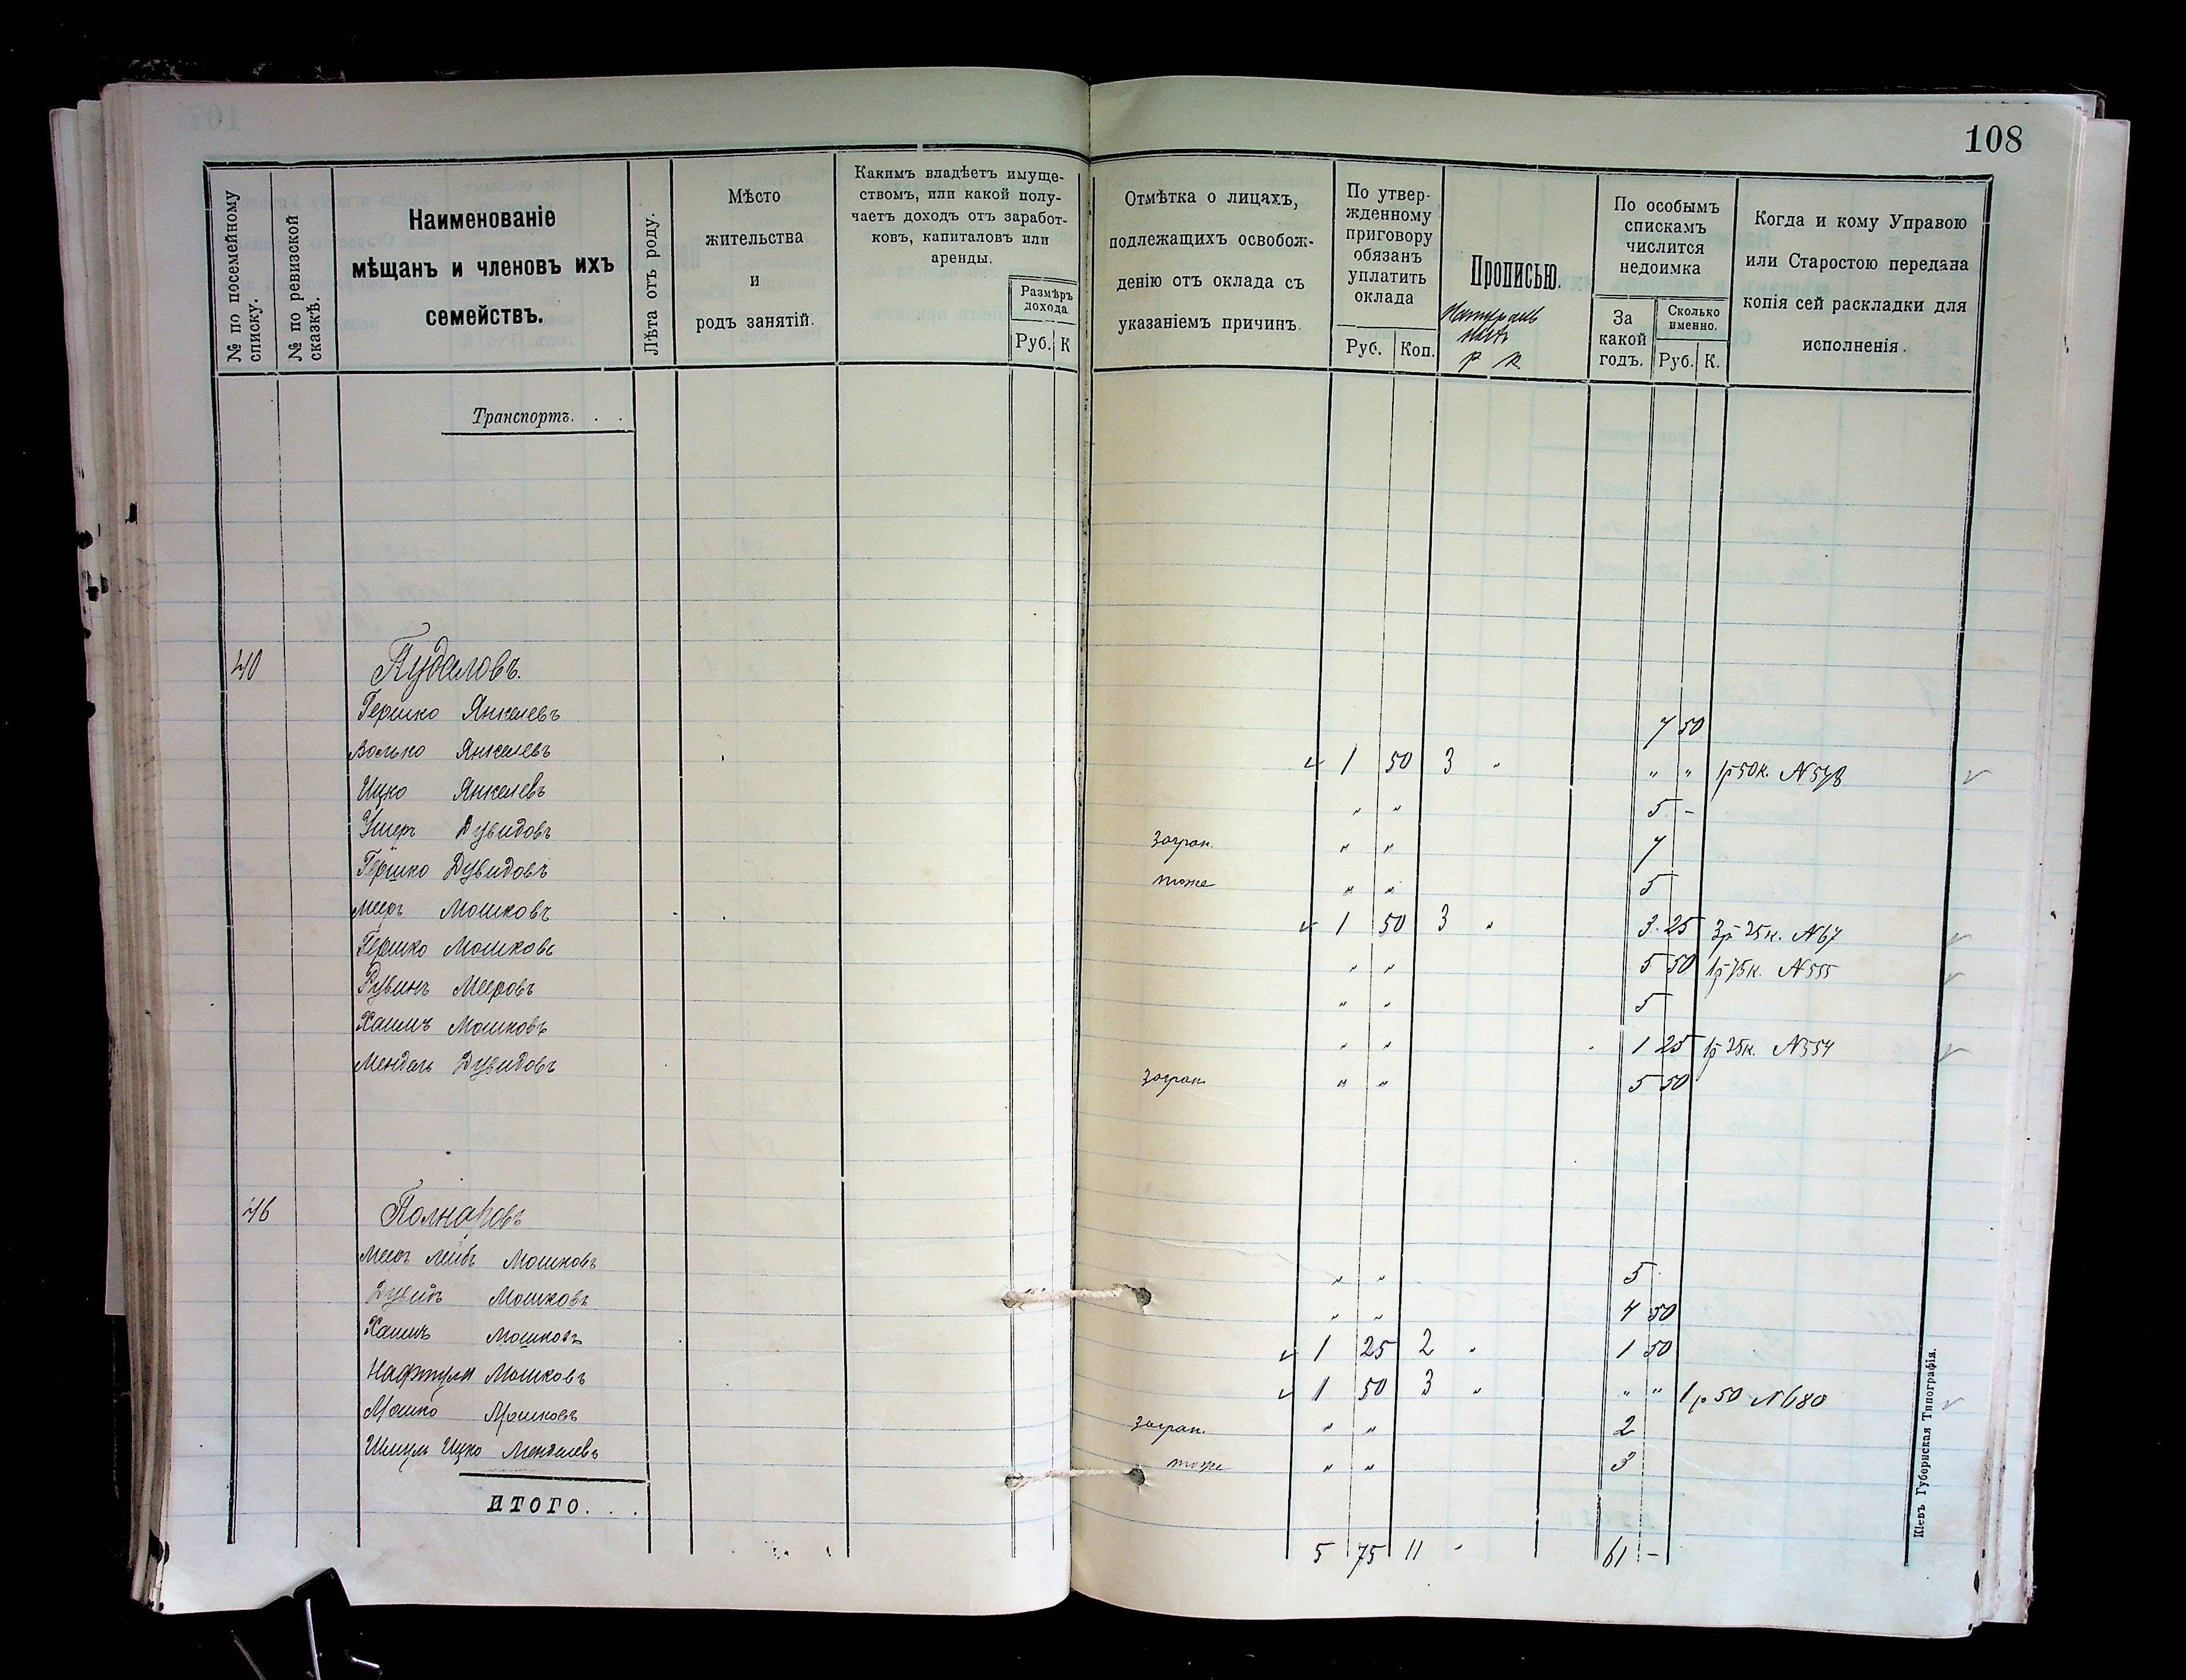 108
№ по посемейному списку.
№ по ревизской сказкѣ.
Наименованіе
мѣщанъ и членовъ ихъ
семействъ.
Лѣта отъ роду.
Мѣсто
жительства
и
родъ занятій.
Какимъ владѣетъ имуще-
ствомъ, или какой полу-
чаетъ доходъ отъ заработ-
ковъ, капиталовъ или
аренды.
Размѣръ
дохода
Руб. К
Отмѣтка о лицахъ,
подлежащихъ освобож-
денію отъ оклада съ
указаніемъ причинъ.
По утвер-
жденному
приговору
обязанъ
уплатить
оклада
Руб. Коп.
Прописью.
р к
По особымъ
спискамъ
числится
недоимка
За
какой
годъ.
Сколько
именно.
Руб. К.
Когда и кому Управою
или Старостою передана
копія сей раскладки для
исполненія.
Транспортъ. . .
40 Пудаловъ.
Гершко Янкелевъ 7 50
Волько Янкелевъ 1 50 3 „ „ „ 1р 50к. N 578
Ицко Янкелевъ „ „ 5 -
Ушеръ Дувидовъ загран. „ „ 7
Гершко Дувидовъ тоже „ „ 5
Мееръ Мошковъ 1 50 3 „ 3.25 3р 25к. N 67
Гершко Мошковъ „ „ 5 50 1р 75к. N 555
Рувинъ Мееровъ „ „ 5
Хаимъ Мошковъ „ „ 1 25 1р 25к. N 554
Мендель Дувидовъ загран. „ „ 5 50
46
Меер Лейбъ Мошковъ „ „ 5
Дувидъ Мошковъ „ „ 4 50
Хаимъ Мошковъ 1 25 2 „ 1 50
Нафтула Мошковъ 1 50 3 „ „ „ 1р 50 N 680
Мошко Мошковъ загран. „ „ 2
Шмуль Ицко Менделевъ тоже „ „ 3
ИТОГО. . .
5 75 11 - 61 -
Кіевъ Губернская Типографія.